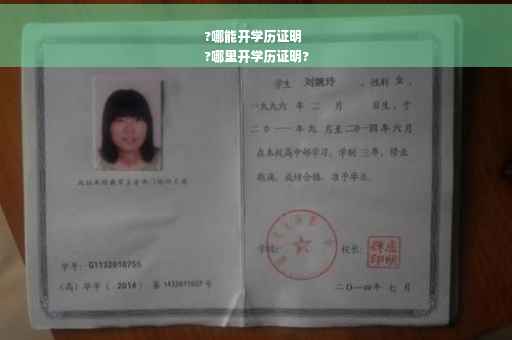 ?哪能开学历证明
?哪里开学历证明?
学生 刘婉玲 、性别 女 ,
一九九六 年 二 月 日生,于
二0一一年九 月至二0一四年六月
在本校高中部学习,学制 三年,修业
期满,成绩合格,准予毕业。
学号: G1132010755
(高)毕字( 2014 )第 1432011027 号
学校: 校长:
二〇一四年 七 月